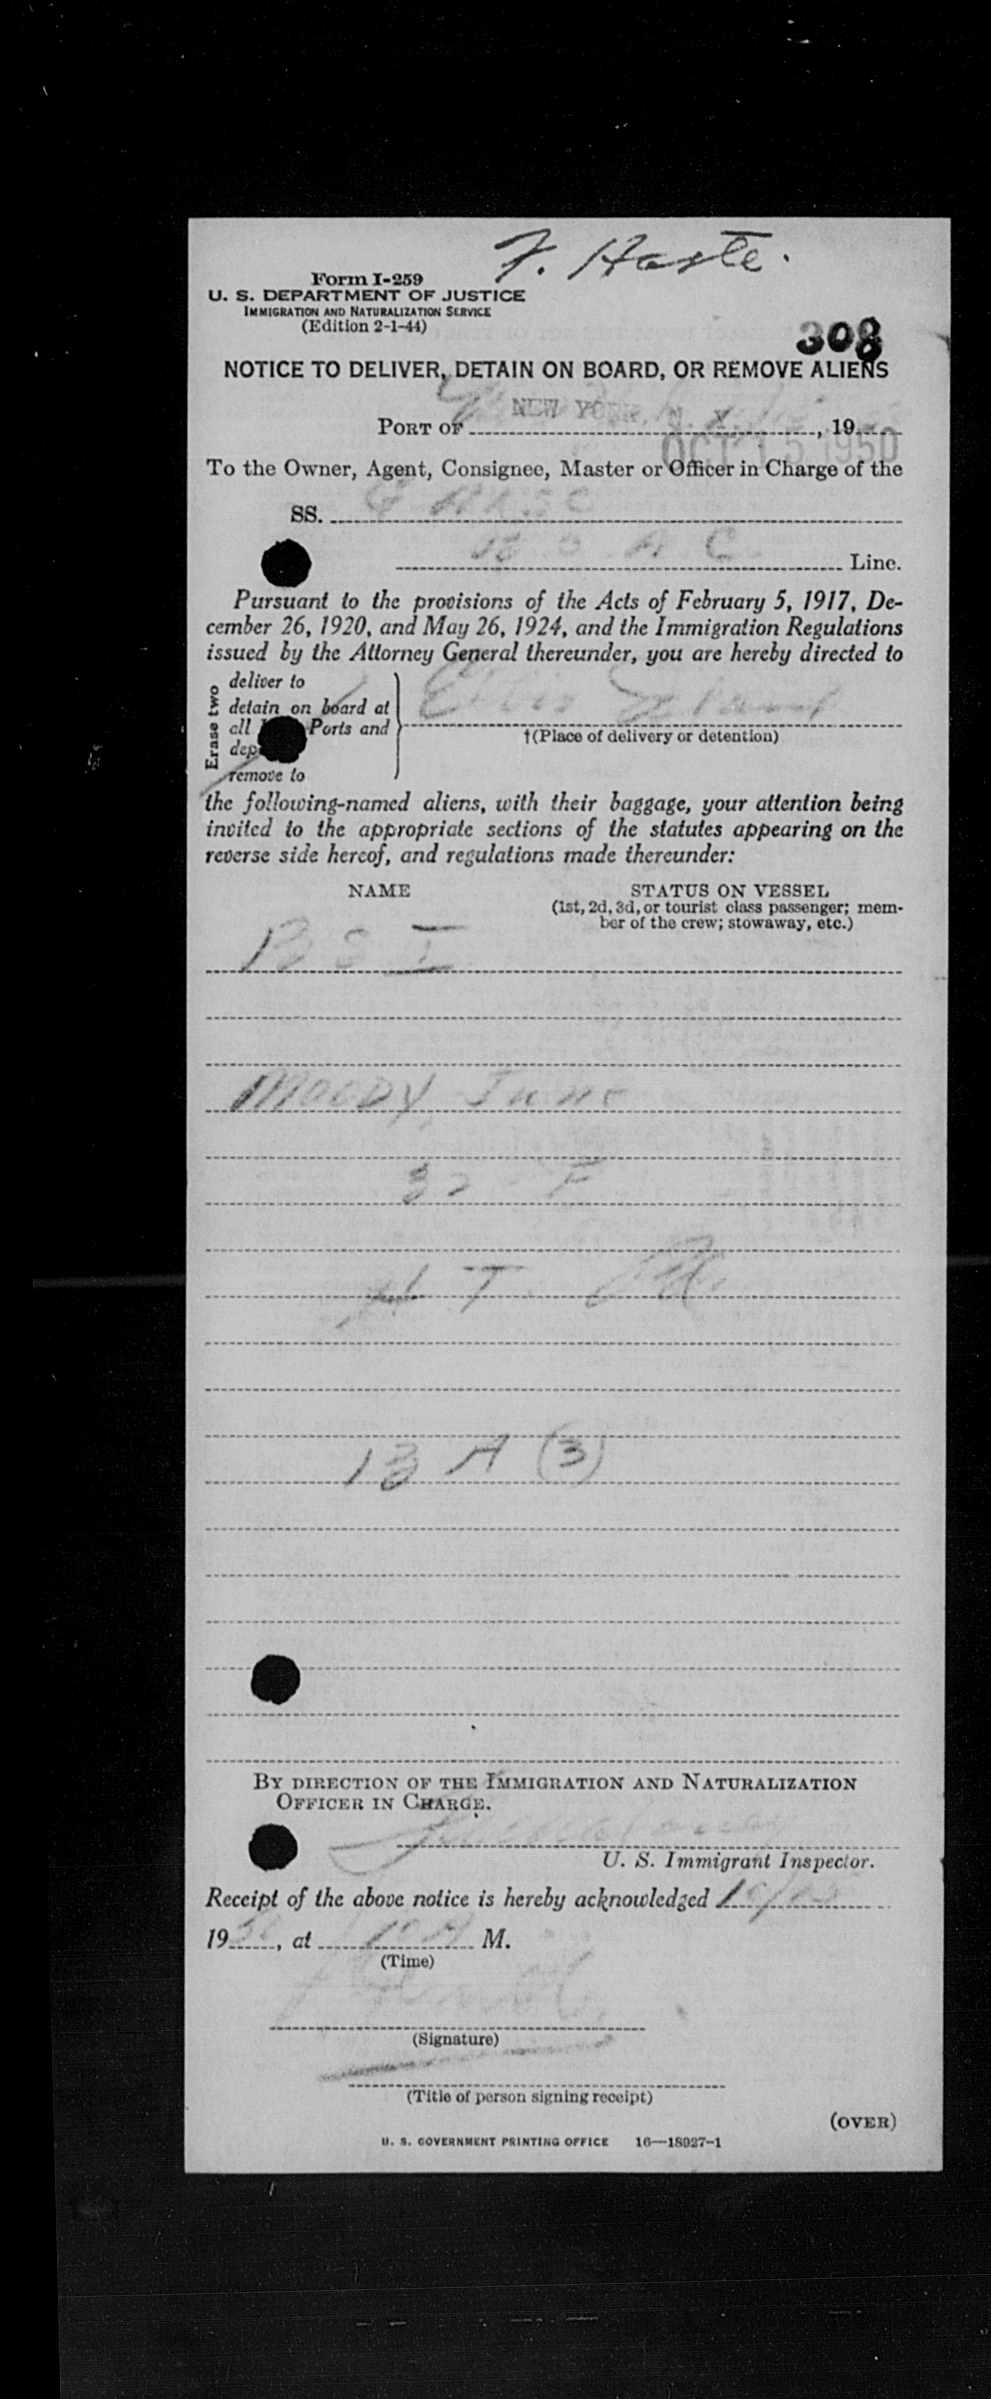 F. Haste.
Form I-259
U. S. DEPARTMENT OF JUSTICE
IMMIGRATION AND NATURALIZATION SERVICE
(Edition 2-1-44)
308
NOTICE TO DELIVER, DETAIN ON BOARD, OR REMOVE ALIENS
NEW YORK, N. Y.
PORT OF , 19
OCT 15 1950
To the Owner, Agent, Consignee, Master or Officer in Charge of the
SS.
B O A C Line.
Pursuant to the provisions of the Acts of February 5, 1917, De-
cember 26, 1920, and May 26, 1924, and the Immigration Regulations
issued by the Attorney General thereunder, you are hereby directed to
Erase two
deliver to
detain on board at
all Ports and
dep
remove to
Ellis Island
†(Place of delivery or detention)
the following-named aliens, with their baggage, your attention being
invited to the appropriate sections of the statutes appearing on the
reverse side hereof, and regulations made thereunder:
NAME STATUS ON VESSEL
(1st, 2d, 3d, or tourist class passenger; mem-
ber of the crew; stowaway, etc.)
B S I
MOODY, June
32 F
13 A (3)
BY DIRECTION OF THE IMMIGRATION AND NATURALIZATION
OFFICER IN CHARGE.
U. S. Immigrant Inspector.
Receipt of the above notice is hereby acknowledged 10/15
19 , at M.
(Time)
(Signature)
(Title of person signing receipt)
(OVER)
U. S. GOVERNMENT PRINTING OFFICE 16—18927-1